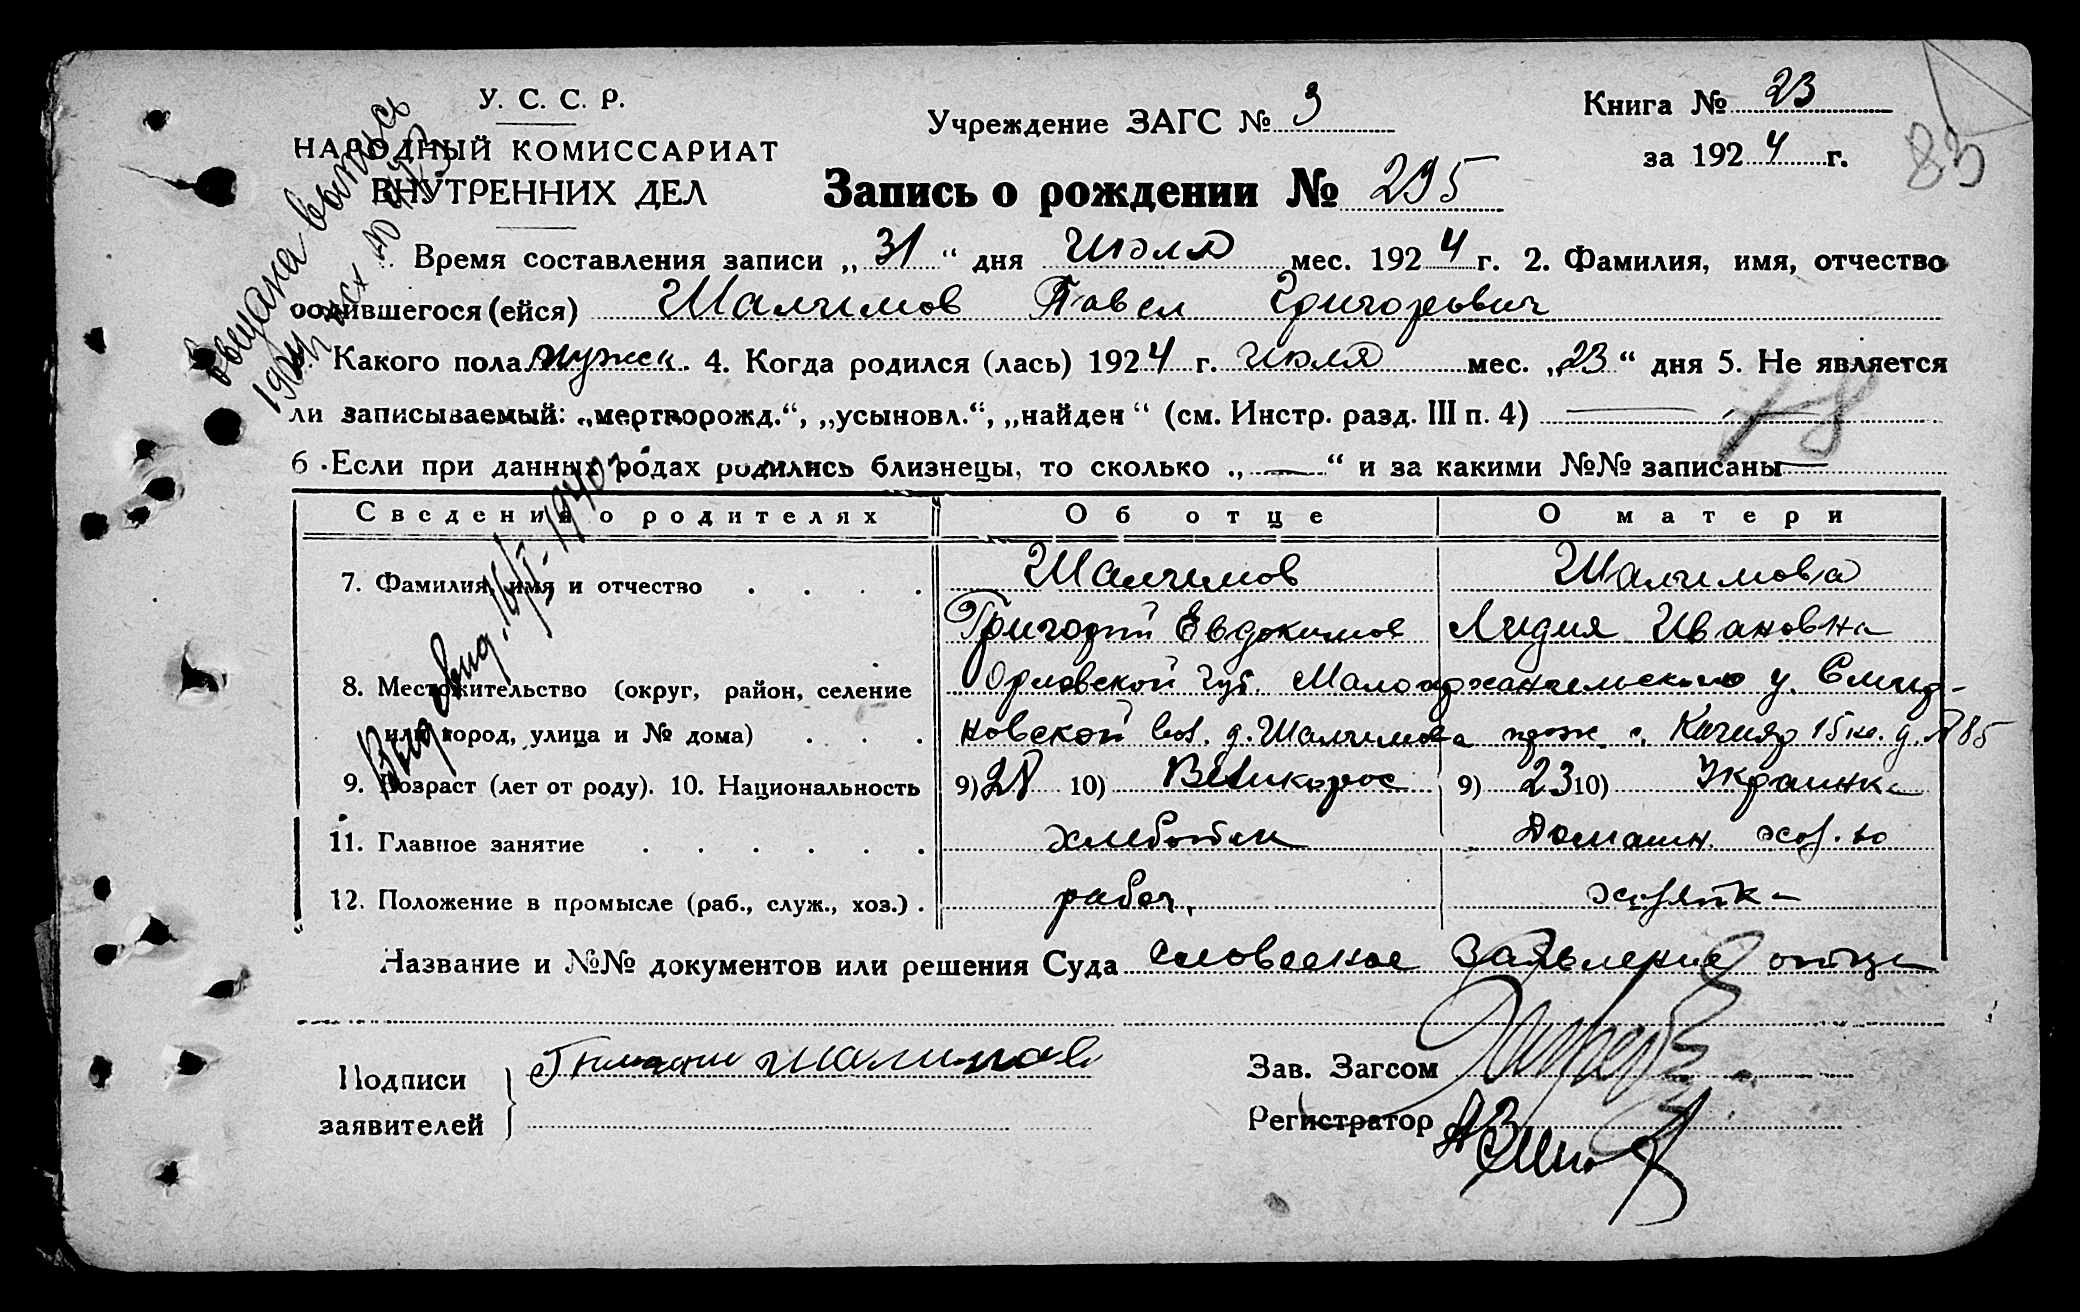 У. С. С. Р.
НАРОДНЫЙ КОМИССАРИАТ
ВНУТРЕННИХ ДЕЛ
Учреждение ЗАГС № 3
Книга № 23
за 1924 г.
83
Запись о рождении № 295
Время составления записи „31“ дня Июля мес. 1924 г. 2. Фамилия, имя, отчество
родившегося (ейся) Шалимов Павел Григорьевич
Какого пола мужск. 4. Когда родился (лась) 1924 г. июля мес. „23“ дня 5. Не является
ли записываемый: „мертворожд.“, „усыновл.“, „найден“ (см. Инстр. разд. III п. 4) —
78
6. Если при данных родах родились близнецы, то сколько „—“ и за какими №№ записаны —
Сведения о родителях Об отце О матери
7. Фамилия, имя и отчество . . . . Шалимов Шалимова
Григорий Евдокимов Лидия Ивановна
8. Местожительство (округ, район, селение Орловской губ. Малоархангельского у.
или город, улица и № дома) . . . новской вол. д. Шалимова прож. 15 д. № 85
9. Возраст (лет от роду). 10. Национальность 9) 28 10) Великорос 9) 23 10) Украинка
11. Главное занятие . . . . . . хлебопек Домашн. хоз-во
12. Положение в промысле (раб., служ., хоз.) . рабоч. хозяйка
Название и №№ документов или решения Суда словесное заявление отца
Подписи
заявителей
Шалимов
Зав. Загсом
Регистратор
выдана выпись
Выд. свид. 16/I-1940 г.